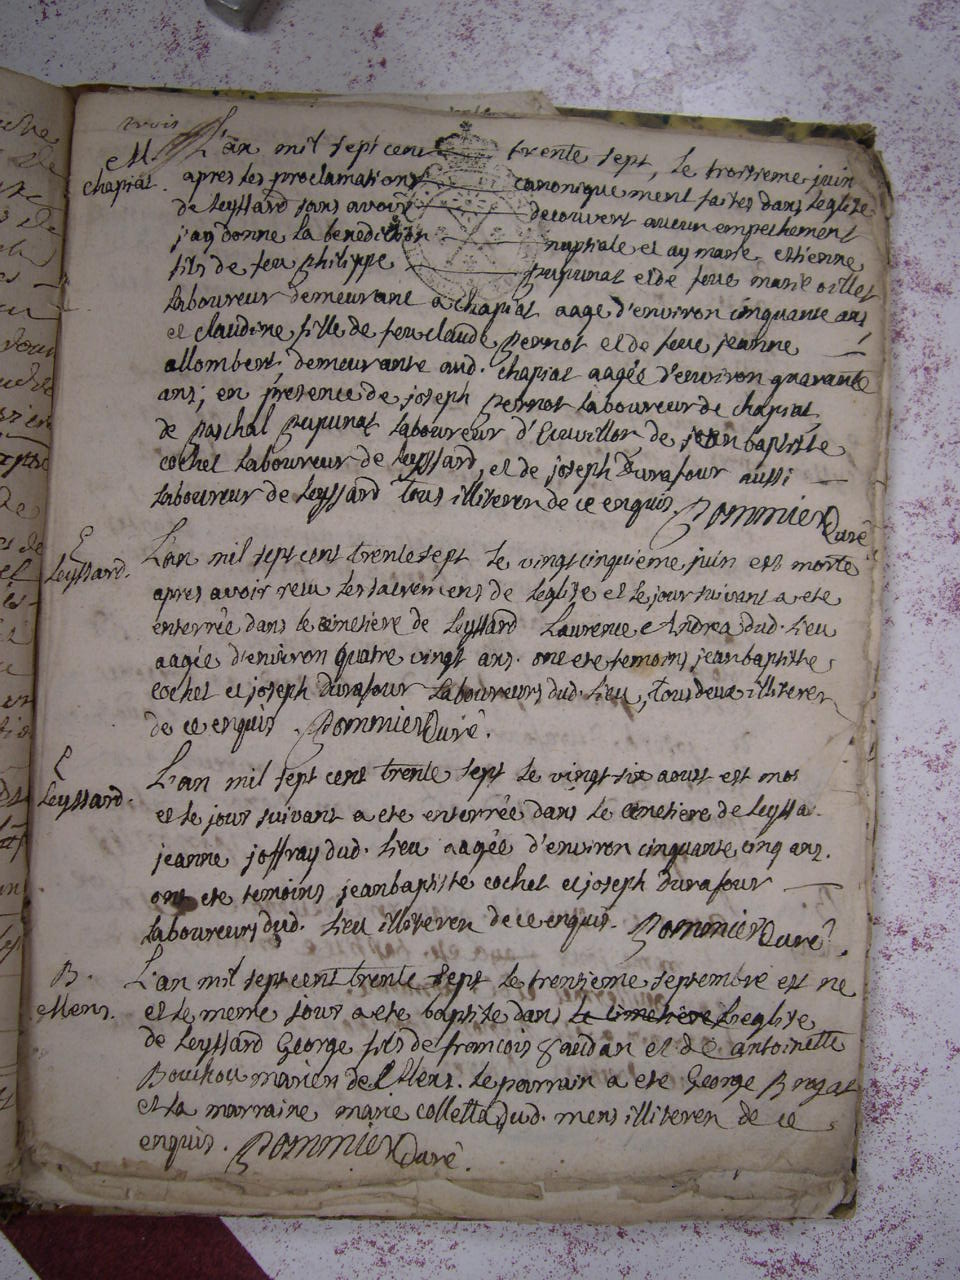 trois
M.
chapiat.
L'an mil sept cent trente sept, le troisieme juin
apres les proclamations canoniquement faites dans leglise
de Leyssard sans avoir decouvert aucun empechement
j'ay donne la benediction nuptiale et ay marie estienne
fils de feu philippe pupunat et de feue marie oillet
laboureur demeurant a chapiat aagé d'environ cinquante ans
et claudine fille de feu claude pernot et de feue jeanne
allombert, demeurante aud. chapiat aagée d'environ quarante
ans; en presence de joseph pernot laboureur de chapiat
de paschal pupunat laboureur d' de jean baptiste
cochet laboureur de Leyssard, et de joseph Durafour aussi
laboureur de Leyssard tous illiteren de ce enquis. Pommier Curé
E
Leyssard.
L'an mil sept cent trente sept le vingt cinquieme juin est morte
apres avoir recu les sacremens de leglise et le jour suivant a ete
enterrée dans le cimetière de Leyssard Laurence Andrea dud. lieu
aagée d'environ quatre vingt ans. ont ete temoins jean baptiste
cochet et joseph Durafour laboureurs dud. lieu, tous deux illiteren
de ce enquis Pommier Curé.
E
Leyssard.
L'an mil sept cent trente sept le vingt six aoust est mor
et le jour suivant a ete enterrée dans le cimetière de Leyssa
jeanne joffray dud. lieu aagée d'environ cinquante cinq ans.
ont ete temoins jean baptiste cochet et joseph Durafour
laboureurs dud. lieu illiteren de ce enquis. Pommier Curé
B.
Mens.
L'an mil sept cent trente sept le trentieme septembre est né
et le meme jour a ete baptisé dans le cimetière l'eglise
de Leyssard George fils de francois gaudan et de antoinette
Bouchou mariés de Mens. le parrain a ete George
et la marraine marie colletta dud. mens illiteren de ce
enquis. Pommier Curé.